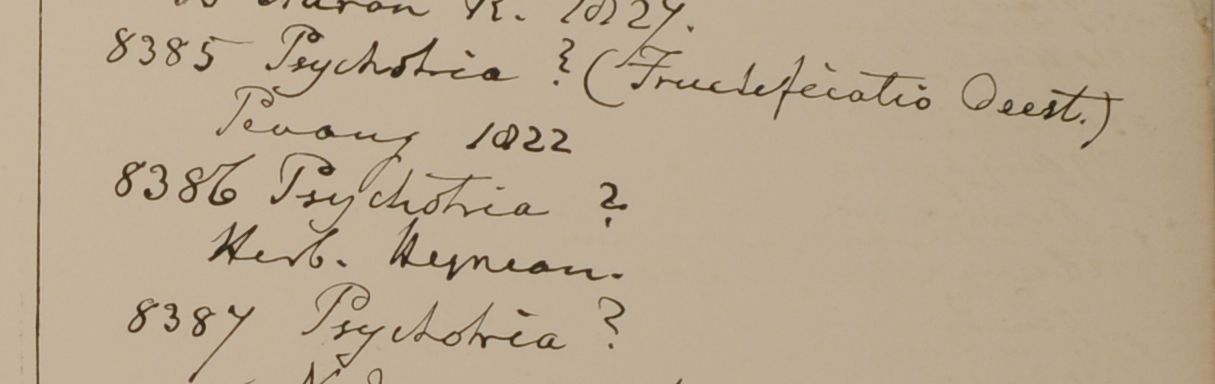 Aaran R. 1827.
8385 Psychotria ? (Fructeficatio Deest.)
Penang 1822
8386 Psychotria ?
Herb. Heynean.
8387 Psychotria ?